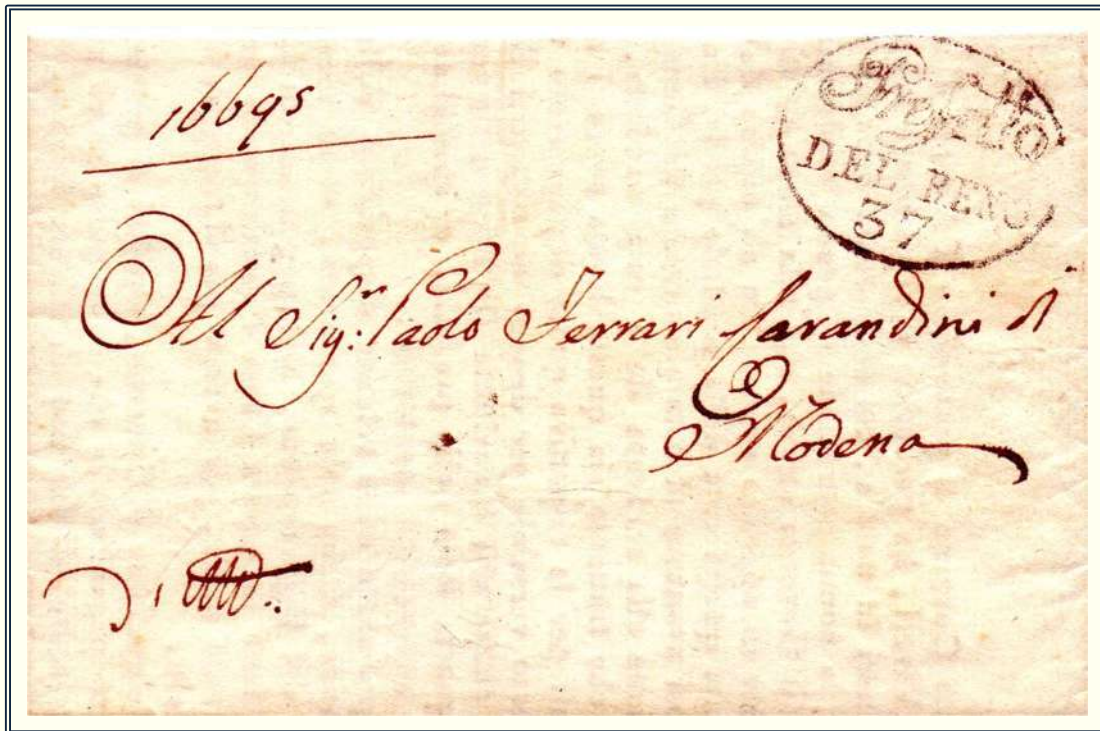 16695
DEL RENO
37
Al Sig.r Paolo Ferrari Carandini di
Modena